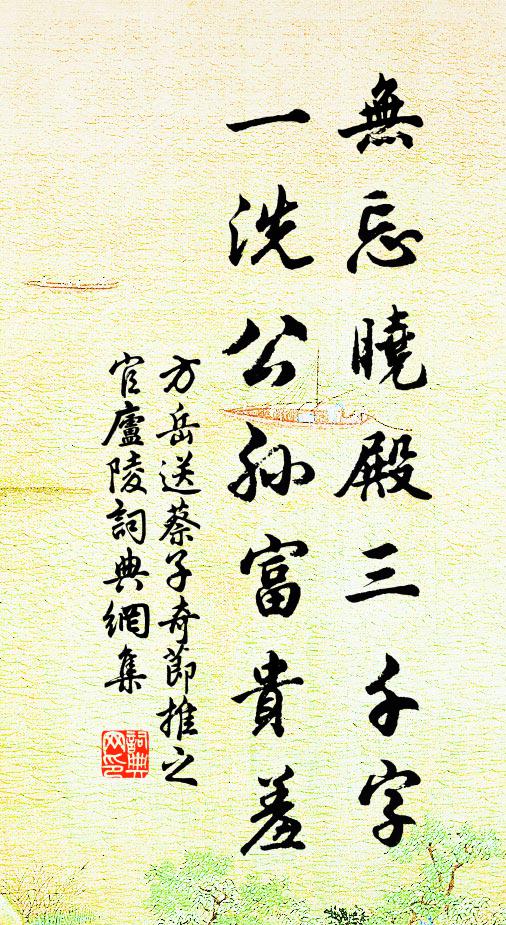 無忘曉殿三千字
一洗公孫富貴羞
方岳送蔡子奇節推之
官廬陵詞典網集
詞典
网印